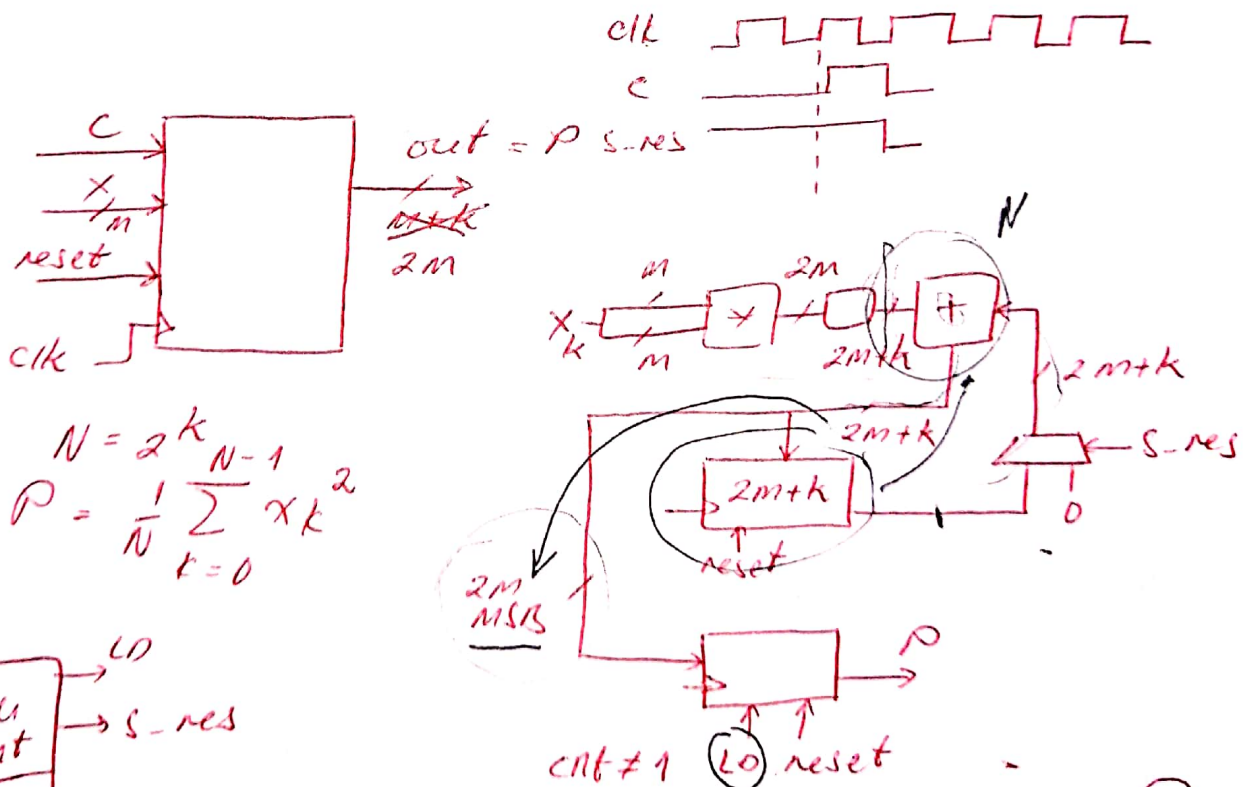 clk
c
s_res
C
X
M
reset
clk
out = P
M+K
2M
N = 2^k
P = 1/N N-1 Σ k=0 x_k^2
N
X_k
M
M
*
2M
2M+k
+
2M+k
S_res
0
2M+k
2M+k
reset
2M
MSB
P
cnt ≠ 1 LD reset
LD
S_res